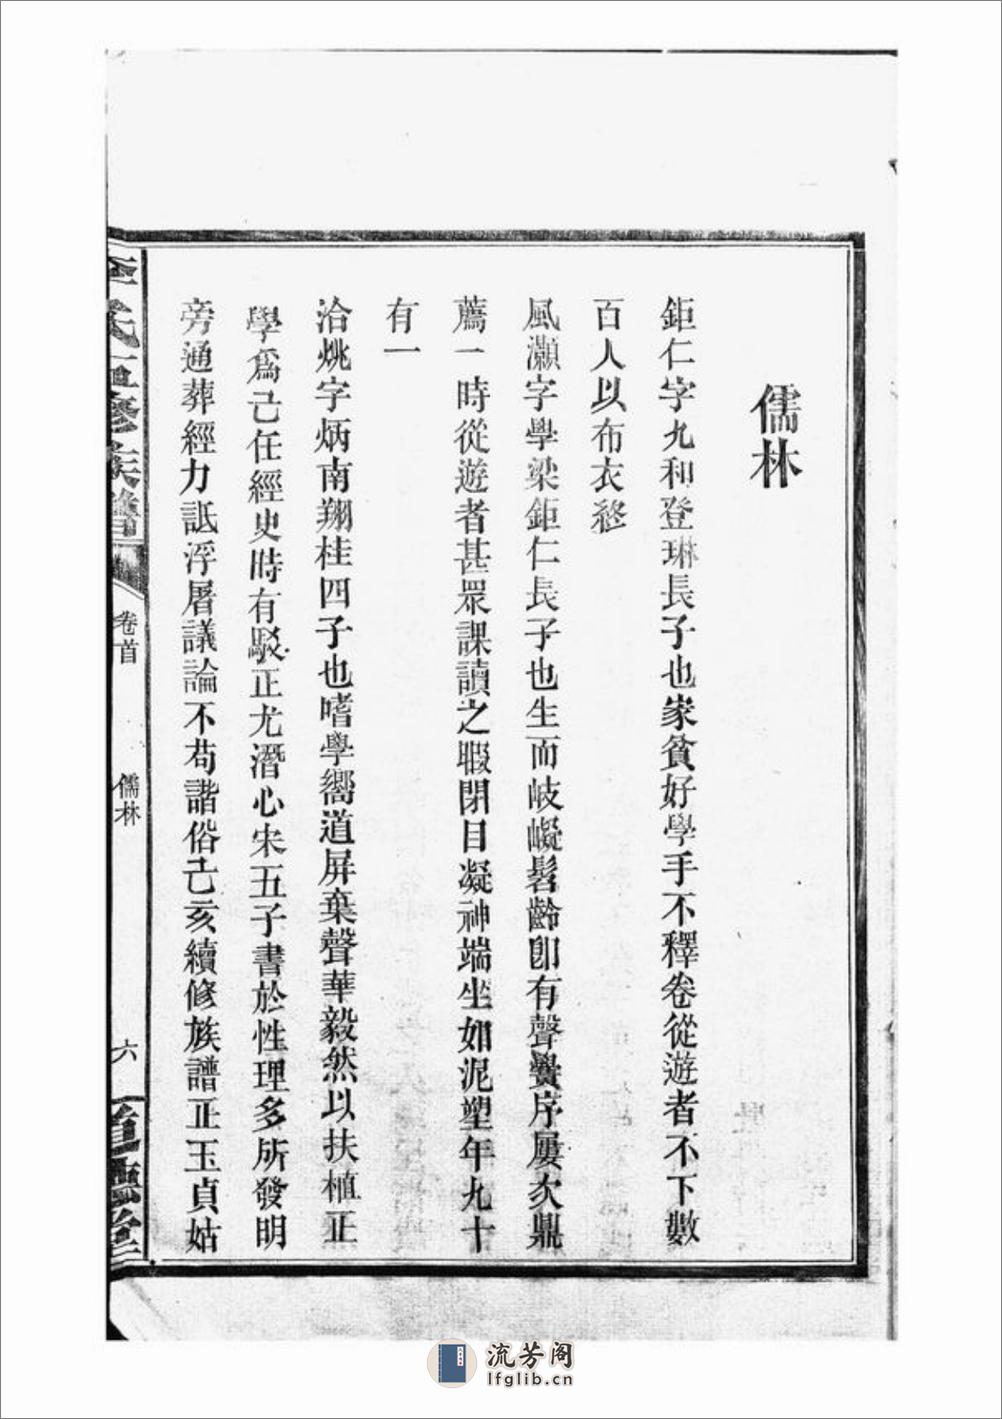 儒林
鉅仁字九和登琳長子也家貧好學手不釋卷從遊者不下數
百人以布衣終
風灝字學梁鉅仁長子也生而岐嶷髫齡卽有聲黌序屢次鼎
薦一時從遊者甚眾課讀之暇閉目凝神端坐如泥塑年九十
有一
洽姚字炳南翔桂四子也嗜學嚮道屏棄聲華毅然以扶植正
學爲己任經史時有駁正尤潛心宋五子書於性理多所發明
旁通葬經力詆浮屠議論不苟諧俗己亥續修族譜正玉貞姑
李氏五修族譜
卷首
儒林
六
流芳阁
lfglib.cn